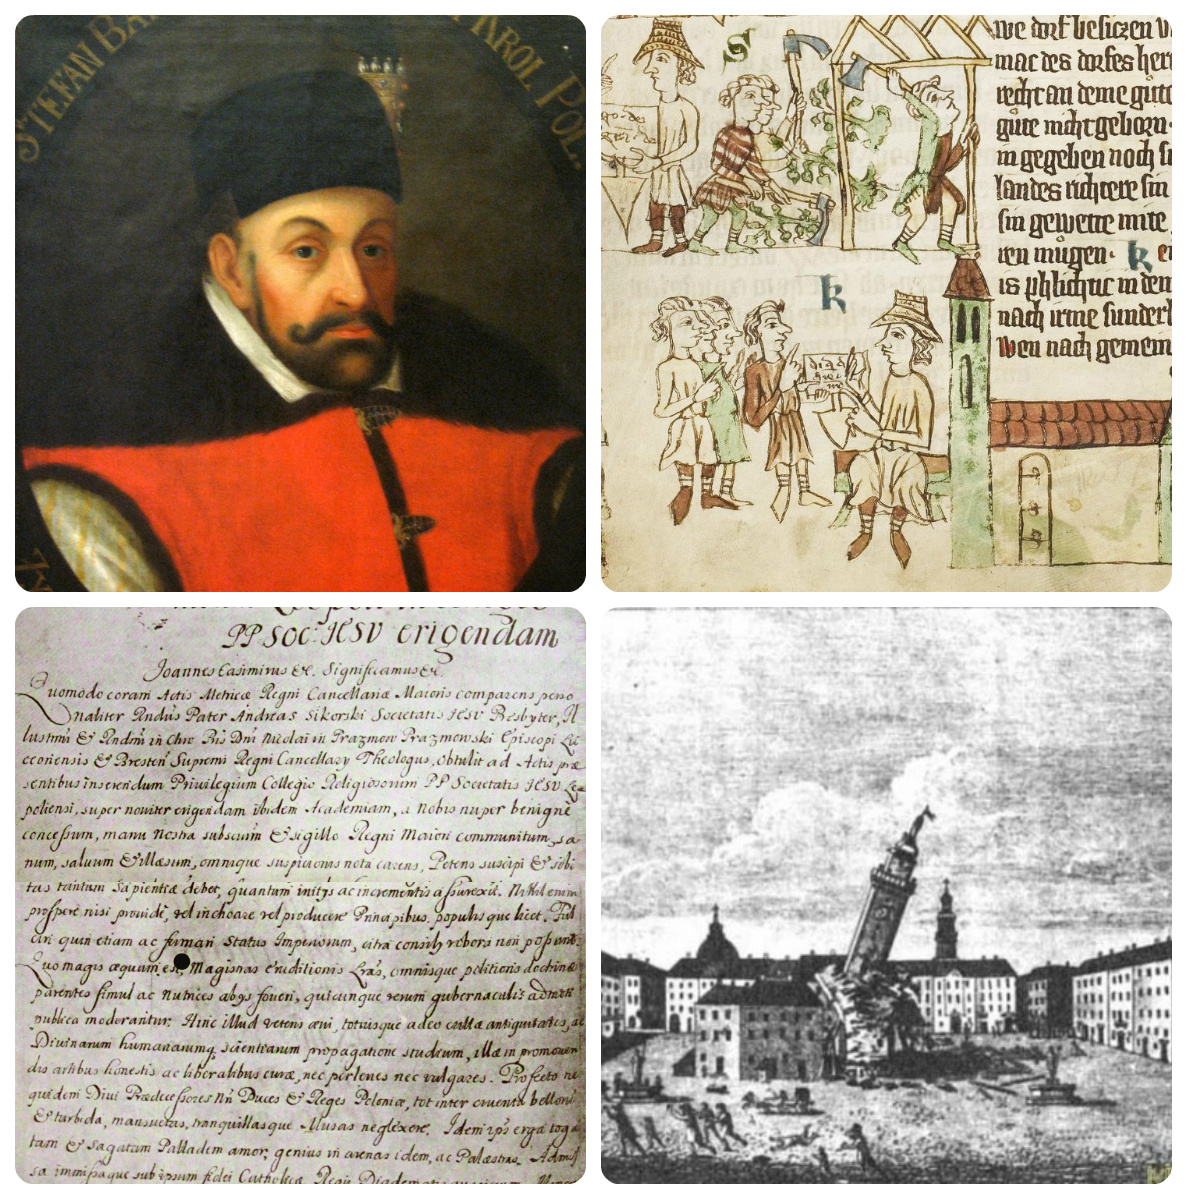 STEFAN BA
KROL POL.
S
we dorf besiczen v
mac des dorfes her
recht an deme gute
gute nicht geborn
m gegeben noch si
landes richtere sin
sin gewette mite
ren mugen· k er
k
nach irme sunderl
wen nach gemein
PP SOC: IESV erigendam
Joannes Casimirus &c. Significamus &c.
Quomodo coram Actis Metricæ Regni Cancellariæ Maioris comparens perso
naliter Rndus Pater Andreas Sikorski Societatis IESV Presbyter, Il
lustmi & Rndmi in Chro Pris Dni Nicolai in Prazmow Prazmowski Episcopi Lu
ceoriensis & Bresten Supremi Regni Cancellarÿ Theologus, obtulit ad Actis præ
sentibus inserendum Privilegium Collegio Religiosorum PP Societatis IESV Le
poliensi, super noviter erigendam ibidem Academiam, a Nobis nuper benigne
concessum, manu Nostra subscrim & sigillo Regni Maiori communitum, sa
num, salvum & illæsum, omnique suspicionis nota carens, Petens suscipi &
tas tantum Sapientiæ debet, quantam initÿs ac incrementis assurexit. Nihil enim
prospere nisi providè, vel inchoare vel producere Principibus, populis que licet.
ciri quin etiam ac firmari Status Imperiorum, citra consilÿ robora non possunt
Quo magis æquum est Magistras eruditionis Lras, omnisque politioris doctrinæ
parentes simul ac nutrices abÿs foveri, quicunque rerum gubernaculis admoti
publica moderantur. Hinc illud veteris ævi, totiusque adeo cultæ antiquitatis,
Divinarum humanarumq scientiarum propagatione studium, illæ in promoven
dis artibus honestis ac liberalibus curæ, nec perlenes nec vulgares. Profecto ne
quidem Divi Prædecessores Nri Duces & Reges Poloniæ, tot inter cruenta bellorum
& turbida, mansuetas, tranquillasque Musas neglexere. Idem ipsis erga toga
tam & Sagatam Palladem amor, genius in arenas idem, ac Palæstras.
sa immissaque sub ipsum fidei Catholicæ Regÿ Diadematis auspicium